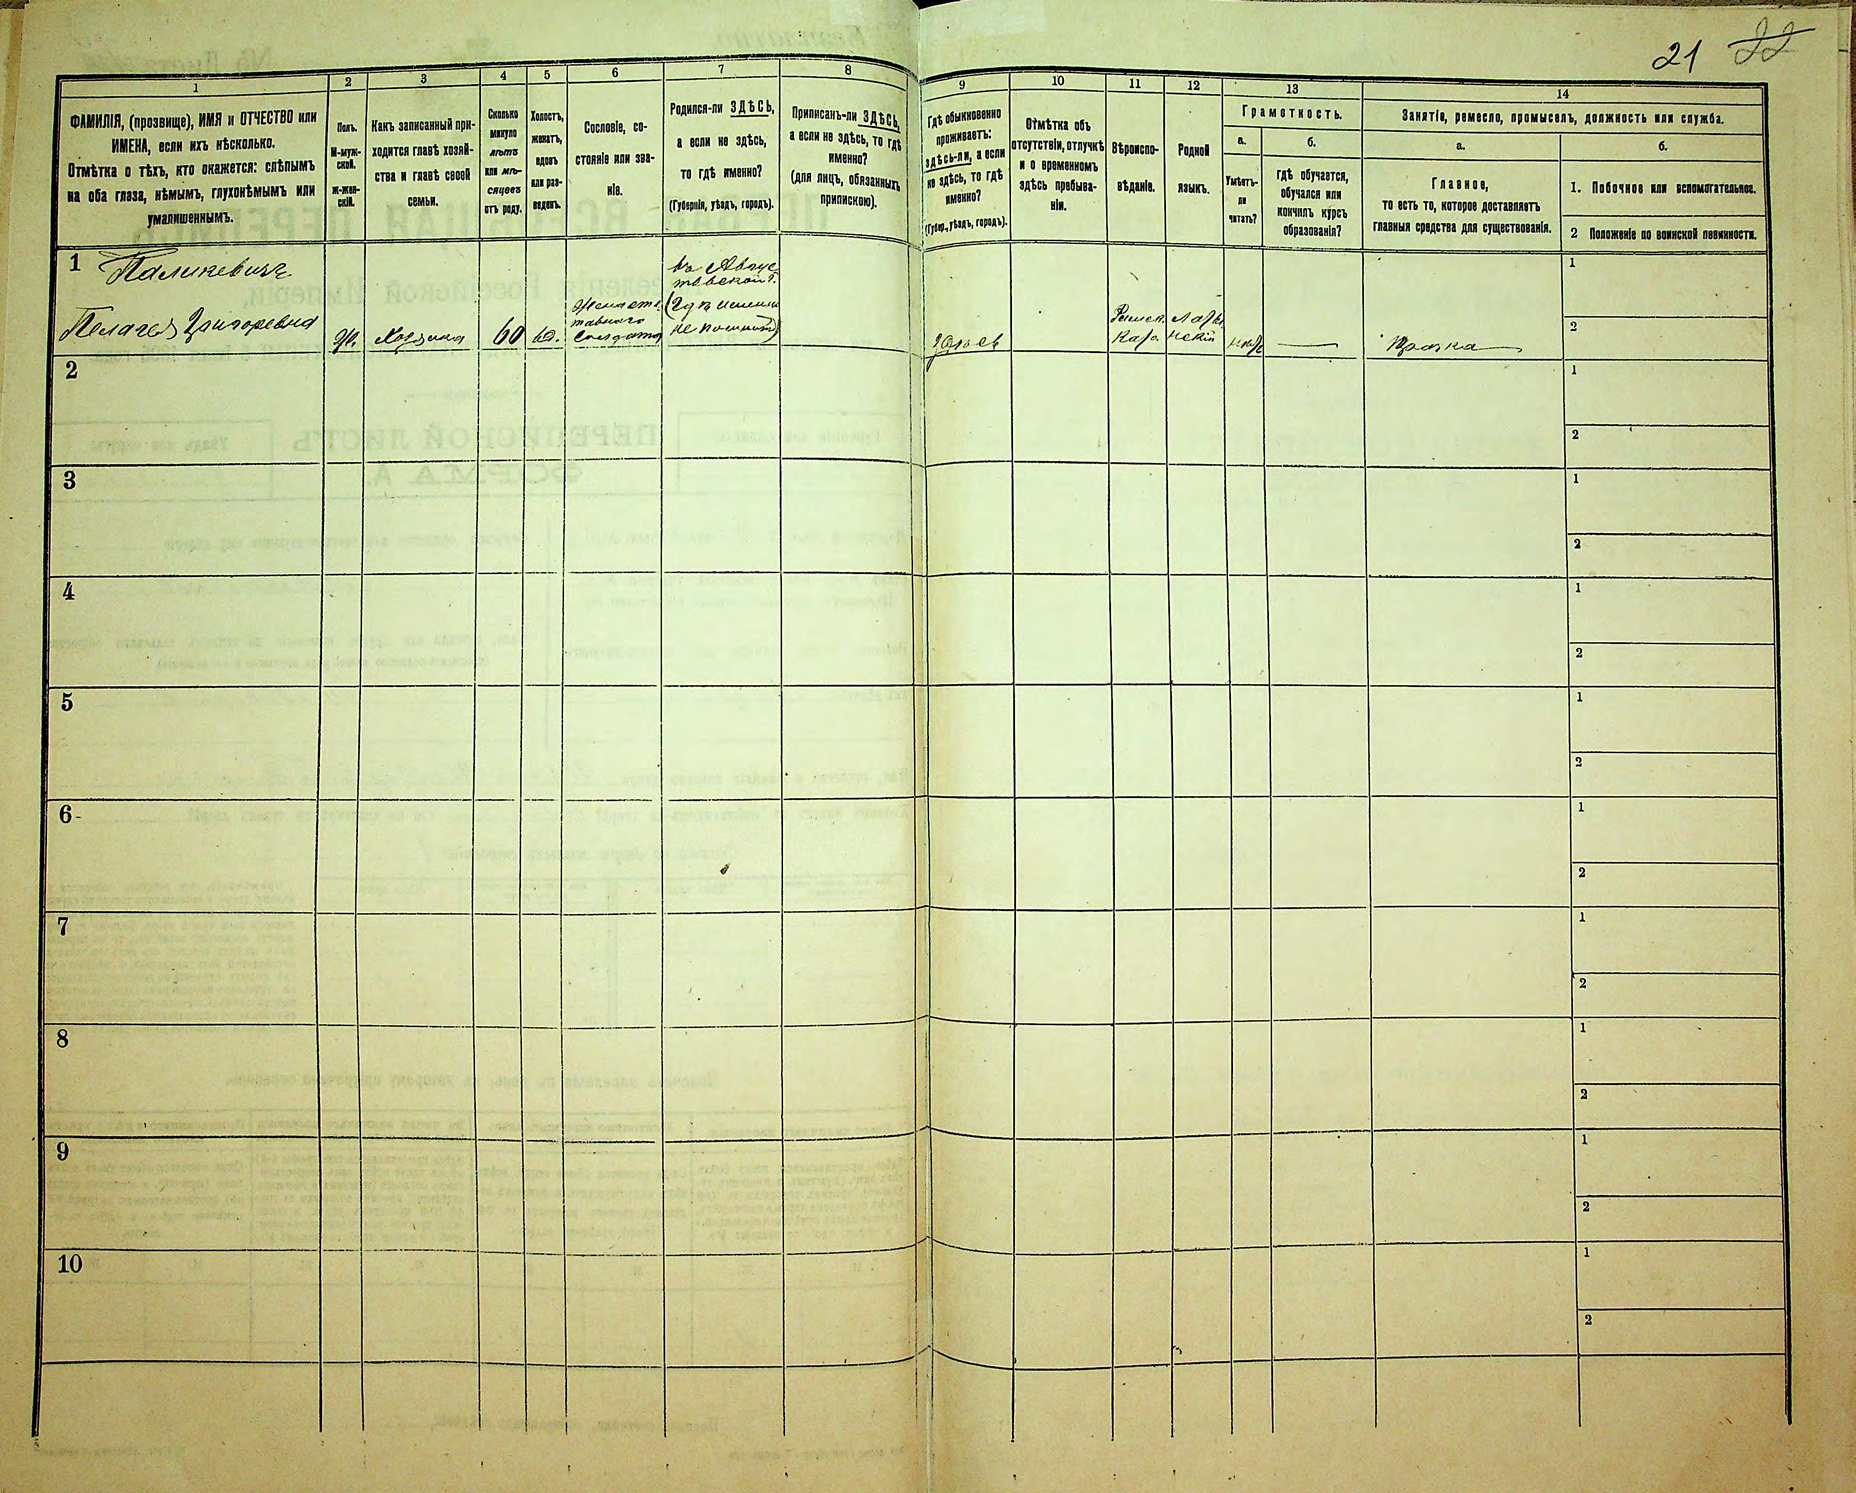 21 22
1
2
3
4
5
6
7
8
9
10
11
12
13
14
ФАМИЛІЯ, (прозвище), ИМЯ и ОТЧЕСТВО или
ИМЕНА, если ихъ нѣсколько.
Отмѣтка о тѣхъ, кто окажется: слѣпымъ
на оба глаза, нѣмымъ, глухонѣмымъ или
умалишеннымъ.
Полъ.
М-муж-
ской.
Ж-жен-
скій.
Какъ записанный при-
ходится главѣ хозяй-
ства и главѣ своей
семьи.
Сколько
минуло
лѣтъ
или мѣ-
сяцевъ
отъ роду.
Холостъ,
женатъ,
вдовъ
или раз-
веденъ.
Сословіе, со-
стояніе или зва-
ніе.
Родился-ли ЗДѢСЬ,
а если не здѣсь,
то гдѣ именно?
(Губернія, уѣздъ, городъ).
Приписанъ-ли ЗДѢСЬ,
а если не здѣсь, то гдѣ
именно?
(для лицъ, обязанныхъ
припискою).
Гдѣ обыкновенно
проживаетъ:
здѣсь-ли, а если
не здѣсь, то гдѣ
именно?
(Губер., уѣздъ, городъ).
Отмѣтка объ
отсутствіи, отлучкѣ
и о временномъ
здѣсь пребыва-
ніи.
Вѣроиспо-
вѣданіе.
Родной
языкъ.
Грамотность.
а.
Умѣетъ-
ли
читать?
б.
гдѣ обучается,
обучался или
кончилъ курсъ
образованія?
Занятіе, ремесло, промыселъ, должность или служба.
а.
Главное,
то есть то, которое доставляетъ
главныя средства для существованія.
б.
1. Побочное или вспомогательное.
2 Положеніе по воинской повинности.
1 Паликевичъ
Пелагея Григоревна
Ж.
Хозяика
60
в.
Жена
отставного
Солдата
въ Авгус
товской г.
(гдѣ именно
не помнитъ)
здѣсь
Римск.
Као.
нскій
нѣтъ
Прачка
1
2
2
1
2
3
1
2
4
1
2
5
1
2
6
1
2
7
1
2
8
1
2
9
1
2
10
1
2